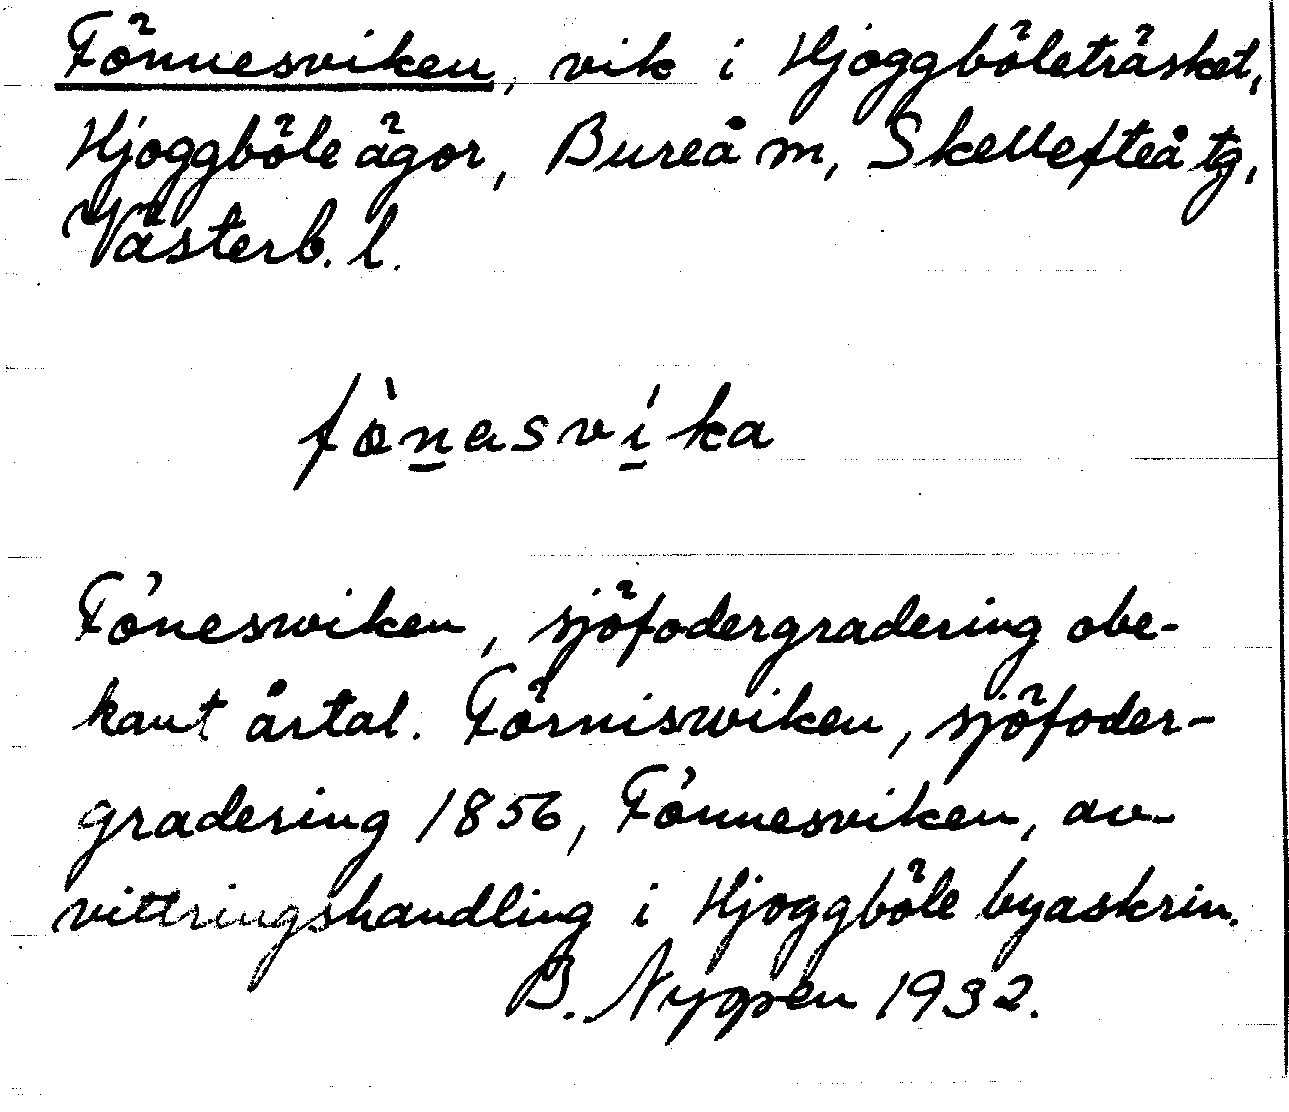 Fönnesviken, vik i Hjoggböleträsket,
Hjoggböle ägor, Bureå m, Skellefteå tg,
Västerb. l.
fò̀nasvíka
Fönesviken, sjöfodergradering obe-
kant årtal. Förnisviken, sjöfoder-
gradering 1856, Fönnesviken, av-
vittringshandling i Hjoggböle byaskrin.
B. 1932.